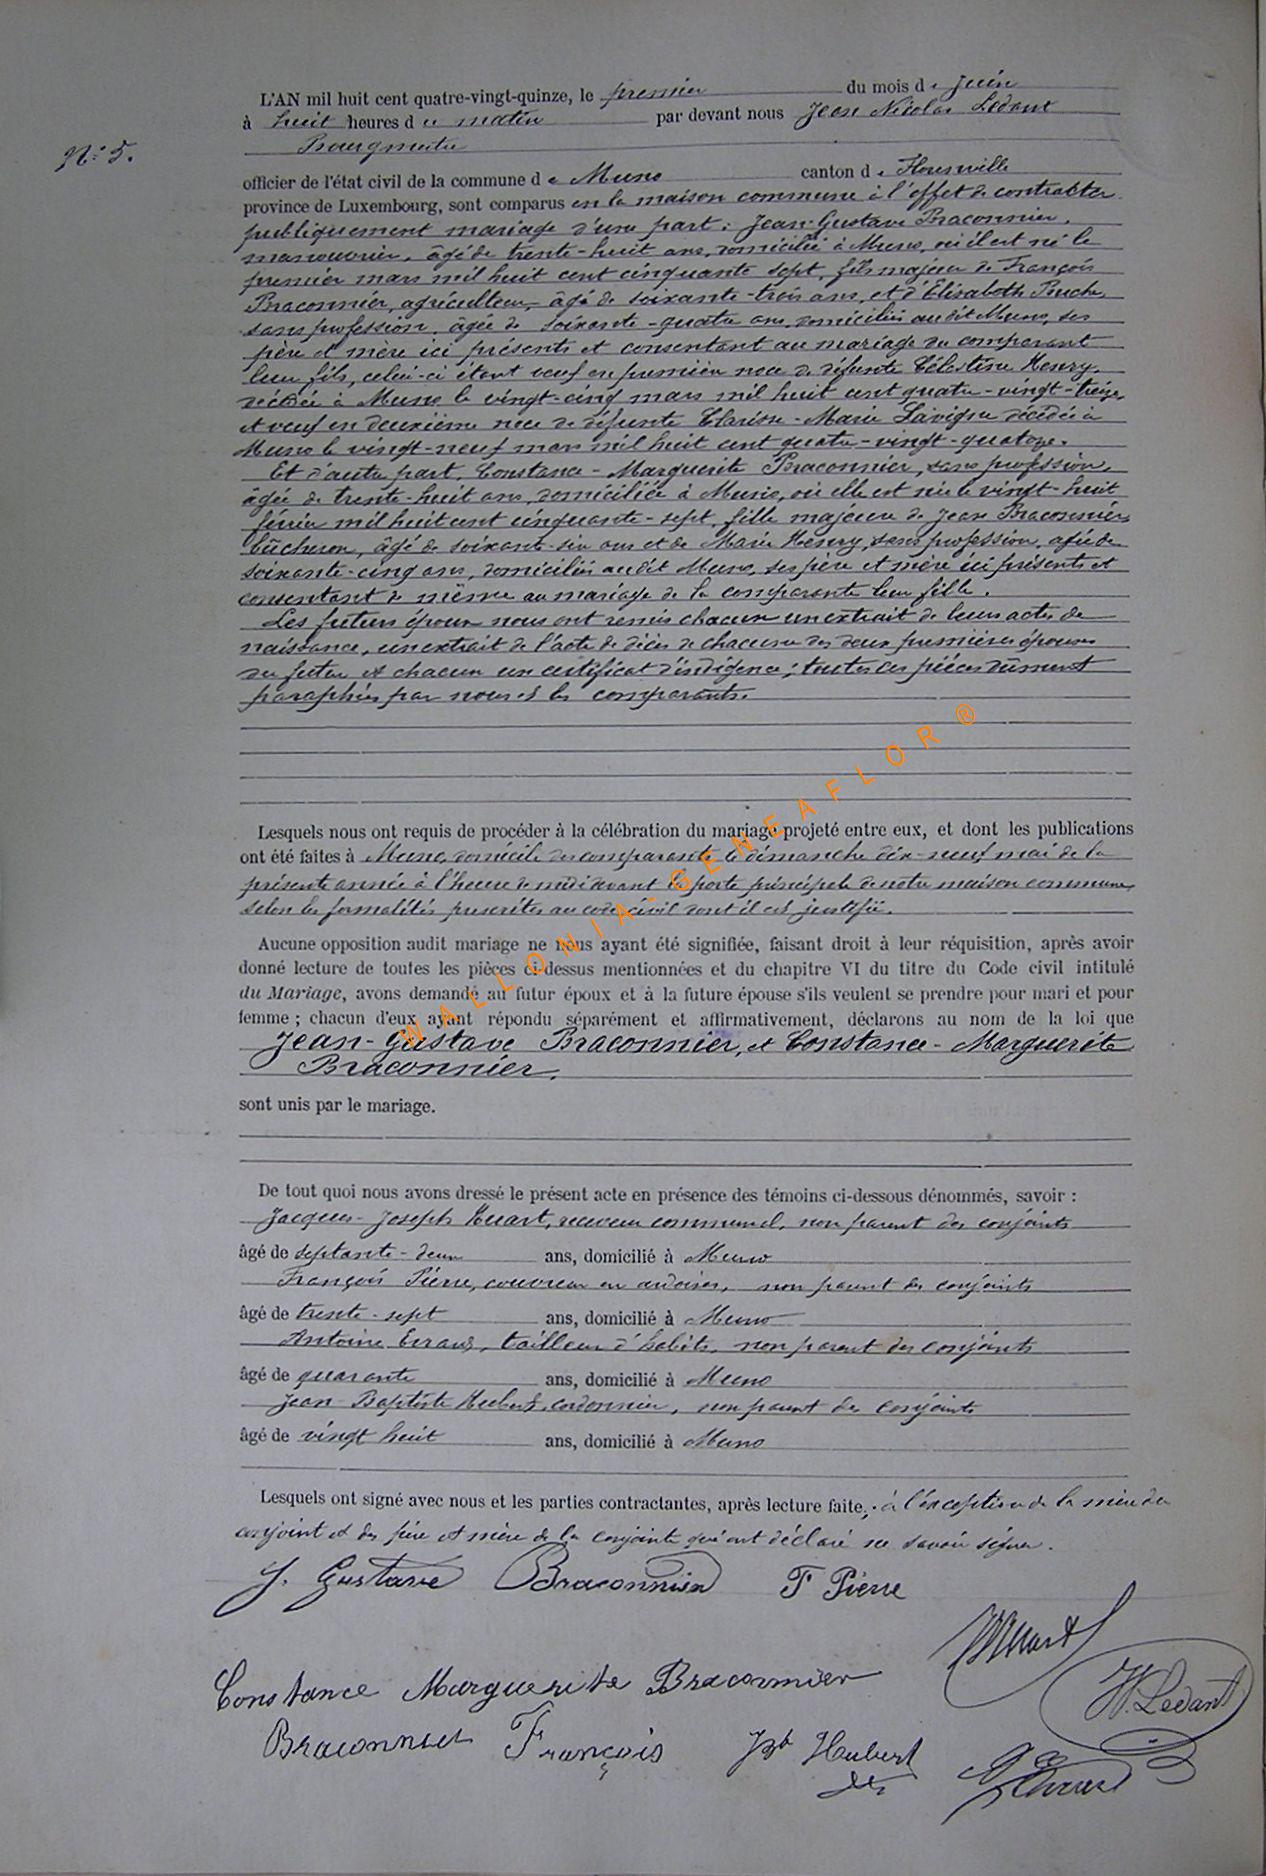 L'AN mil huit cent quatre-vingt-quinze, le premier du mois de Juin
à huit heures du matin par devant nous Jean Nicolas Ledant
Bourgmestre
N° 5.
officier de l'état civil de la commune de Muno canton de Florenville
province de Luxembourg, sont comparus en la maison commune à l'effet de contracter
publiquement mariage d'une part : Jean-Gustave Braconnier,
manouvrier, âgé de trente-huit ans, domicilié à Muno, où il est né le
premier mars mil huit cent cinquante sept, fils majeur de François
Braconnier, agriculteur, âgé de soixante-trois ans, et d'Elisabeth
sans profession, âgée de soixante-quatre ans, domiciliés audit Muno, ses
père et mère ici présents et consentant au mariage du comparant
leur fils, celui-ci étant veuf en premier noce de défunte Célestine Henry,
décédée à Muno le vingt-cinq mars mil huit cent quatre-vingt-treize,
et veuf en deuxième noce de défunte Clarisse-Marie Lavigne décédée à
Muno le vingt-neuf mars mil huit cent quatre-vingt-quatorze.
Et d'autre part, Constance-Marguerite Braconnier, sans profession,
âgée de trente-huit ans, domiciliée à Muno, où elle est née le vingt-huit
février mil huit cent cinquante-sept, fille majeure de Jean Braconnier,
bûcheron, âgé de soixante-six ans et de Marie Henry, sans profession, agée de
soixante-cinq ans, domiciliés audit Muno, ses père et mère ici présents et
consentant de même au mariage de la comparante leur fille.
Les futurs époux nous ont remis chacun un extrait de leurs actes de
naissance, un extrait de l'acte de décès de chacune des deux premières épouses
du futur et chacun un certificat d'indigence ; toutes ces pièces dûment
paraphées par nous et les comparants.
Lesquels nous ont requis de procéder à la célébration du mariage projeté entre eux, et dont les publications
ont été faites à Muno, domicile des comparants le dimanche dix-neuf mai de la
présente année à l'heure de midi devant la porte principale de notre maison commune,
selon les formalités prescrites au code civil dont il est justifié.
Aucune opposition audit mariage ne nous ayant été signifiée, faisant droit à leur réquisition, après avoir
donné lecture de toutes les pièces ci-dessus mentionnées et du chapitre VI du titre du Code civil intitulé
du Mariage, avons demandé au futur époux et à la future épouse s'ils veulent se prendre pour mari et pour
femme ; chacun d'eux ayant répondu séparément et affirmativement, déclarons au nom de la loi que
Jean-Gustave Braconnier, et Constance-Marguerite
Braconnier.
sont unis par le mariage.
De tout quoi nous avons dressé le présent acte en présence des témoins ci-dessous dénommés, savoir :
Jacques-Joseph Huart, receveur communal, non parent des conjoints
âgé de septante-deux ans, domicilié à Muno
François Pierre, couvreur en ardoises, non parent des conjoints
âgé de trente-sept ans, domicilié à Muno
Antoine tailleur d'habits, non parent des conjoints
âgé de quarante ans, domicilié à Muno
Jean-Baptiste Hubert, cordonnier, non parent des conjoints
âgé de vingt huit ans, domicilié à Muno
Lesquels ont signé avec nous et les parties contractantes, après lecture faite, à l'exception de la mère du
conjoint et des père et mère de la conjointe qui ont déclaré ne savoir signer.
J. Gustave Braconnier F Pierre
Huart
Constance Marguerite Braconnier
N. Ledant
Braconnier François Jbte Hubert
WALLONIA-GENEAFLOR ®